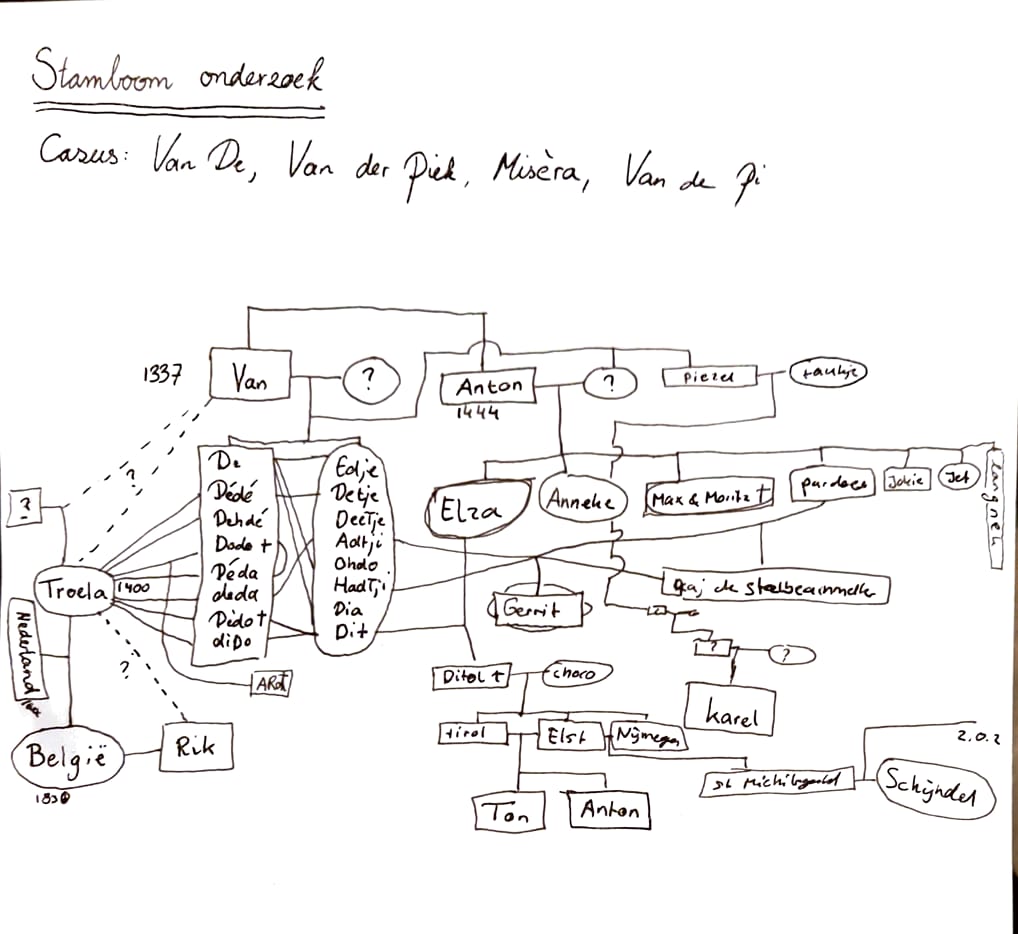 Stamboom onderzoek
Casus: Van De, Van der Piek, Misèra, Van de Pi
1337
Van
?
Anton
1444
?
Piezel
?
?
De
Dédé
Dehdé
Dodo †
Déda
deda
Dèdo †
diDo
Edje
Detje
Deetje
Adtji
Ohdo
HadTji
Dia
Dit
Elza
Anneke
Max & Moritz †
pardoes
Jokie
Jet
Langnek
Troela
1400
Gerrit
Nederland
?
ARoT
Ditol †
choco
?
?
Karel
België
1830
Rik
tirol
Elst
Nijmegen
Ton
Anton
Schijndel
2.0.2